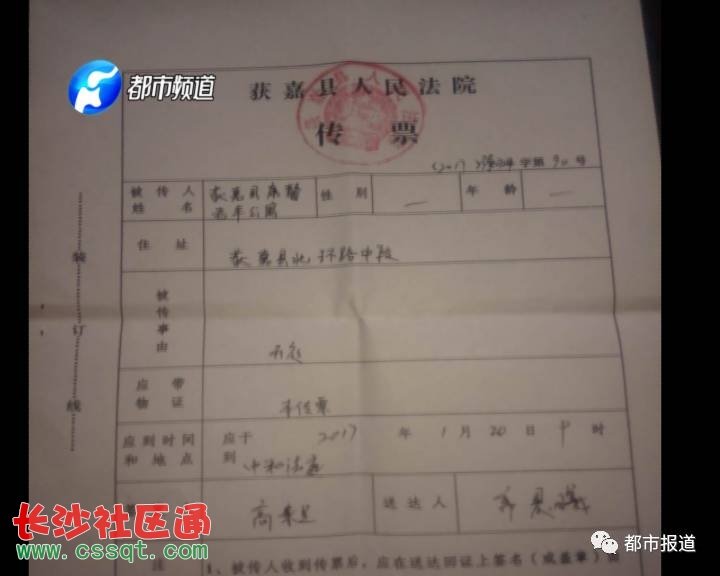 都市频道
获嘉县人民法院
传票
(2017) 字第90号
被传人姓名 获嘉县康馨老年公寓 性别 — 年龄 —
住址 获嘉县北环路中段
被传事由 开庭
应带物证 本传票
应到时间和地点 应于 2017 年 1 月 20 日 9 时
到 中和法庭
送达人
装订线
注 1、被传人收到传票后,应在送达回证上签名(或盖章)
长沙社区通
www.cssqt.com
都市报道